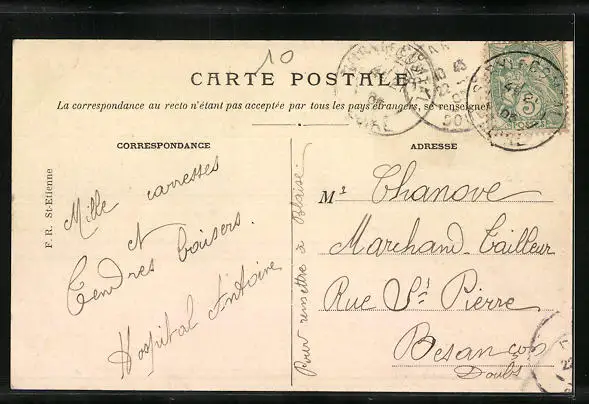 10
CARTE POSTALE
La correspondance au recto n'étant pas acceptée par tous les pays étrangers, se renseigner
CORRESPONDANCE
F. R. St-Etienne
Mille carresses
et
Tendres baisers.
Hospital Antoine
Pour remettre à Blaise
ADRESSE
Mr Thanove
Marchand-Tailleur
Rue St Pierre
Besançon
Doubs